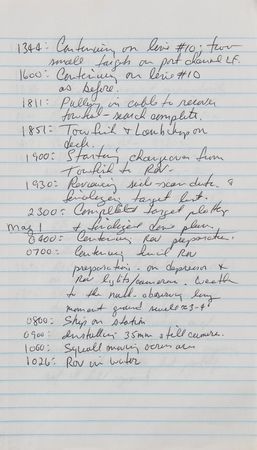 1344: Continuing on line #10; two
small targets on port channel LF.
1600: Continuing on line #10
as before.
1811: Pulling in cable to recover
towfish - search complete.
1851: Towfish & on
deck.
1900: Starting changeover from
Towfish to ROV.
1930: Reviewing side-scan data &
finalizing target list.
2300: Completed target plotting
& finalized dive plan.
May 1
0400: Continuing ROV preparation.
0700: Continuing ROV
preparations - on depressor &
ROV lights/cameras. Weather
to the north - observing long
moment ground swells ≈ 3-4'
0800: Ship on station
0900: Installing 35mm still camera.
1000: Squall moving across area
1026: ROV in water